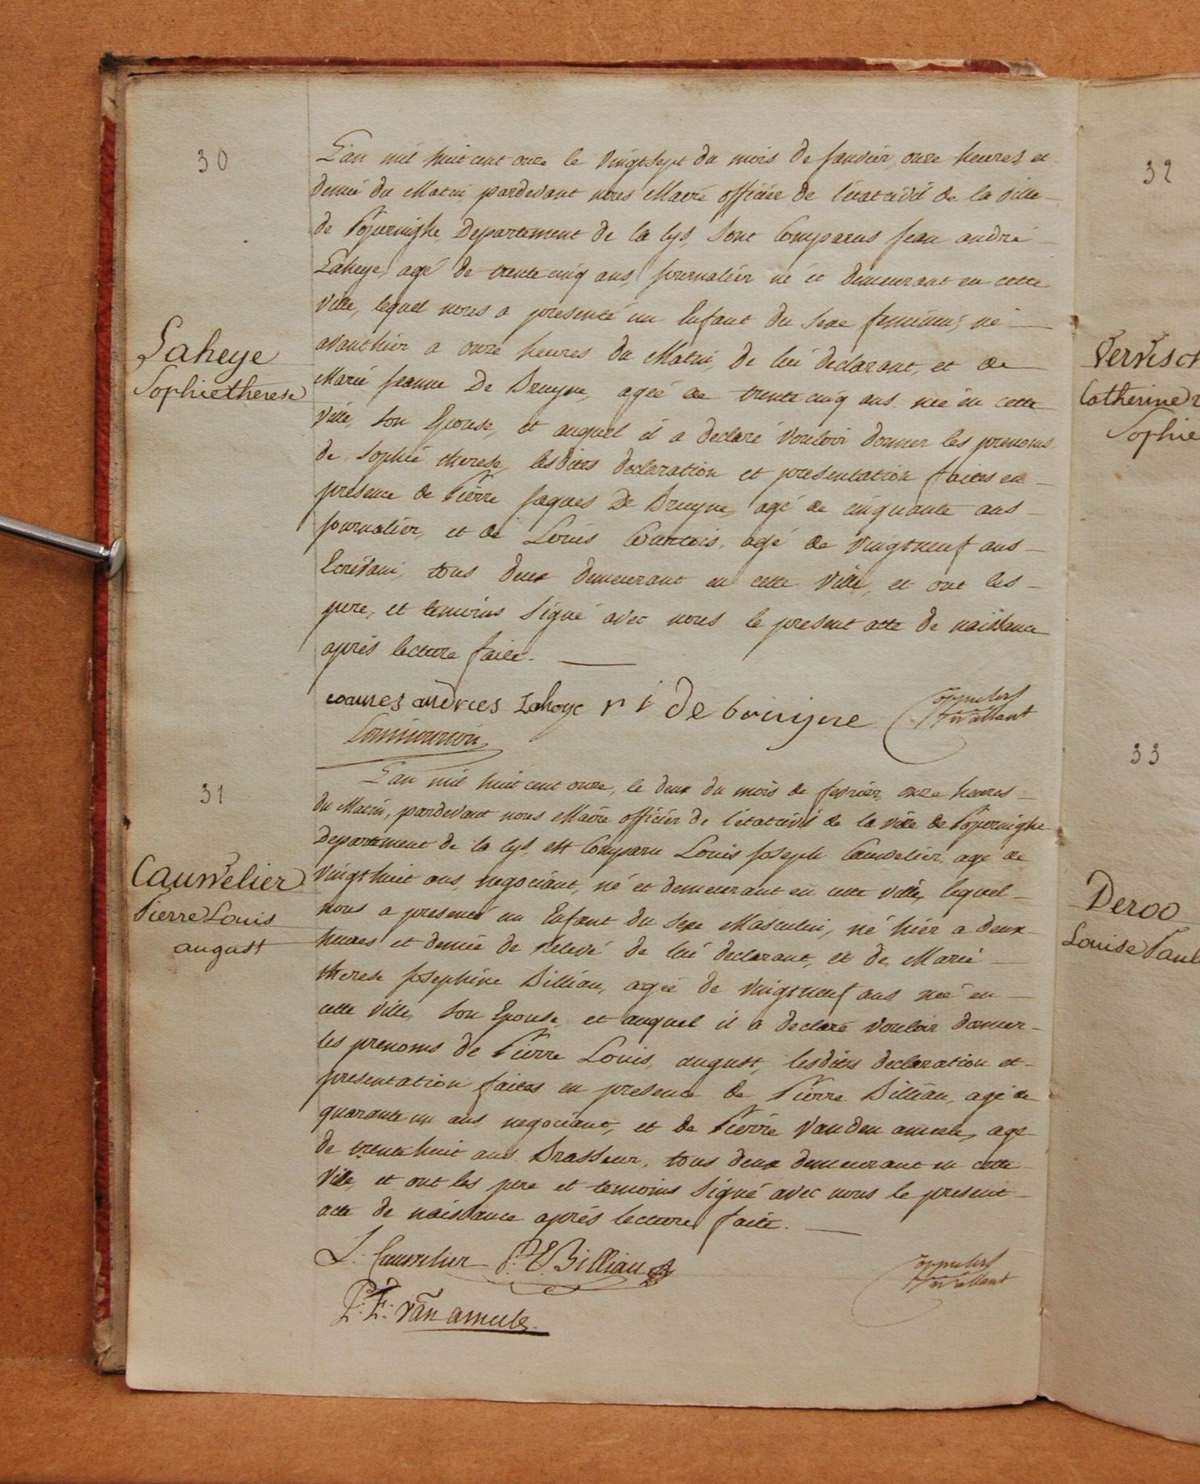 30
Laheye
Sophie therese
L'an mil huit cent onze le vingtsept du mois de Janvier, onze heures et
demie du Matin pardevant nous Maire officier de l'état civil de la ville
de Poperinghe, Departement de la Lys, sont Comparus Jean andré
Laheye, agé de trente cinq ans, journalier né et demeurant en cette
ville, lequel nous a presenté un Enfant du sexe feminin, né
avanthier a onze heures du Matin, de lui declarant, et de
Marie Jeanne De Bruyne, agée de trente cinq ans née en cette
ville, son Epouse, et auquel il a declaré vouloir donner les prenoms
de Sophie therese, lesdites declaration et presentation faites en
presence de Pierre Jaques De Bruyne, agé de cinquante ans
journalier, et de Louis Courtois, agé de vingtneuf ans
Ecrivain, tous deux demeurant en cette ville, et ont les
pere, et temoins signé avec nous le present acte de naissance
aprés lecture faite.
Joannes andries Laheye p i de bruijne
31
Cauwelier
Pierre Louis
august
L'an mil huit cent onze, le deux du mois de fevrier, onze heures
du Matin, pardevant nous Maire officier de l'état civil de la ville de Poperinghe
Departement de la Lys, est Comparu Louis Joseph Cauwelier, agé de
vingthuit ans, negociant, né et demeurant en cette ville, lequel
nous a presenté un Enfant du sexe Masculin, né hier a deux
heures et demie de relevé de lui declarant, et de Marie
therese Josephine Billiau, agée de vingtneuf ans née en
cette ville, son Epouse et auquel il a declaré vouloir donner
les prenoms de Pierre Louis, august, lesdites declaration et
presentation faites en presence de Pierre Billiau, agé de
quarante un ans negociant, et de Pierre Vanden ameele, agé
de trente huit ans Brasseur, tous deux demeurant en cette
ville, et ont les pere et temoins signé avec nous le present
acte de naissance aprés lecture faite.
L. Cauwelier P. E Billiau
P. F. van amele
32
Vervisch
Catherine
Sophie
33
Deroo
Louise Paul